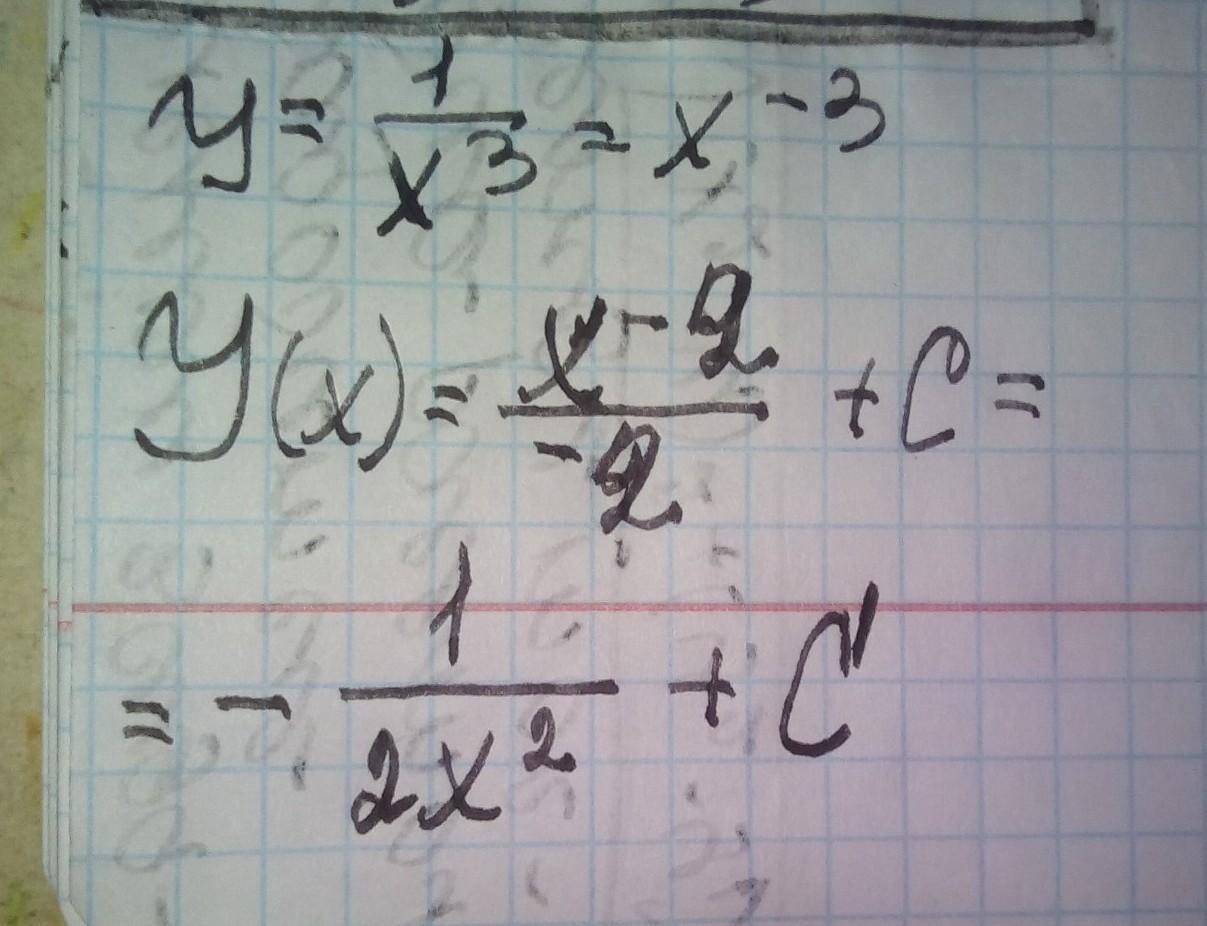 y = 1/x³ = x⁻³
Y(x) = x⁻²/-2 + C =
= - 1/2x² + C